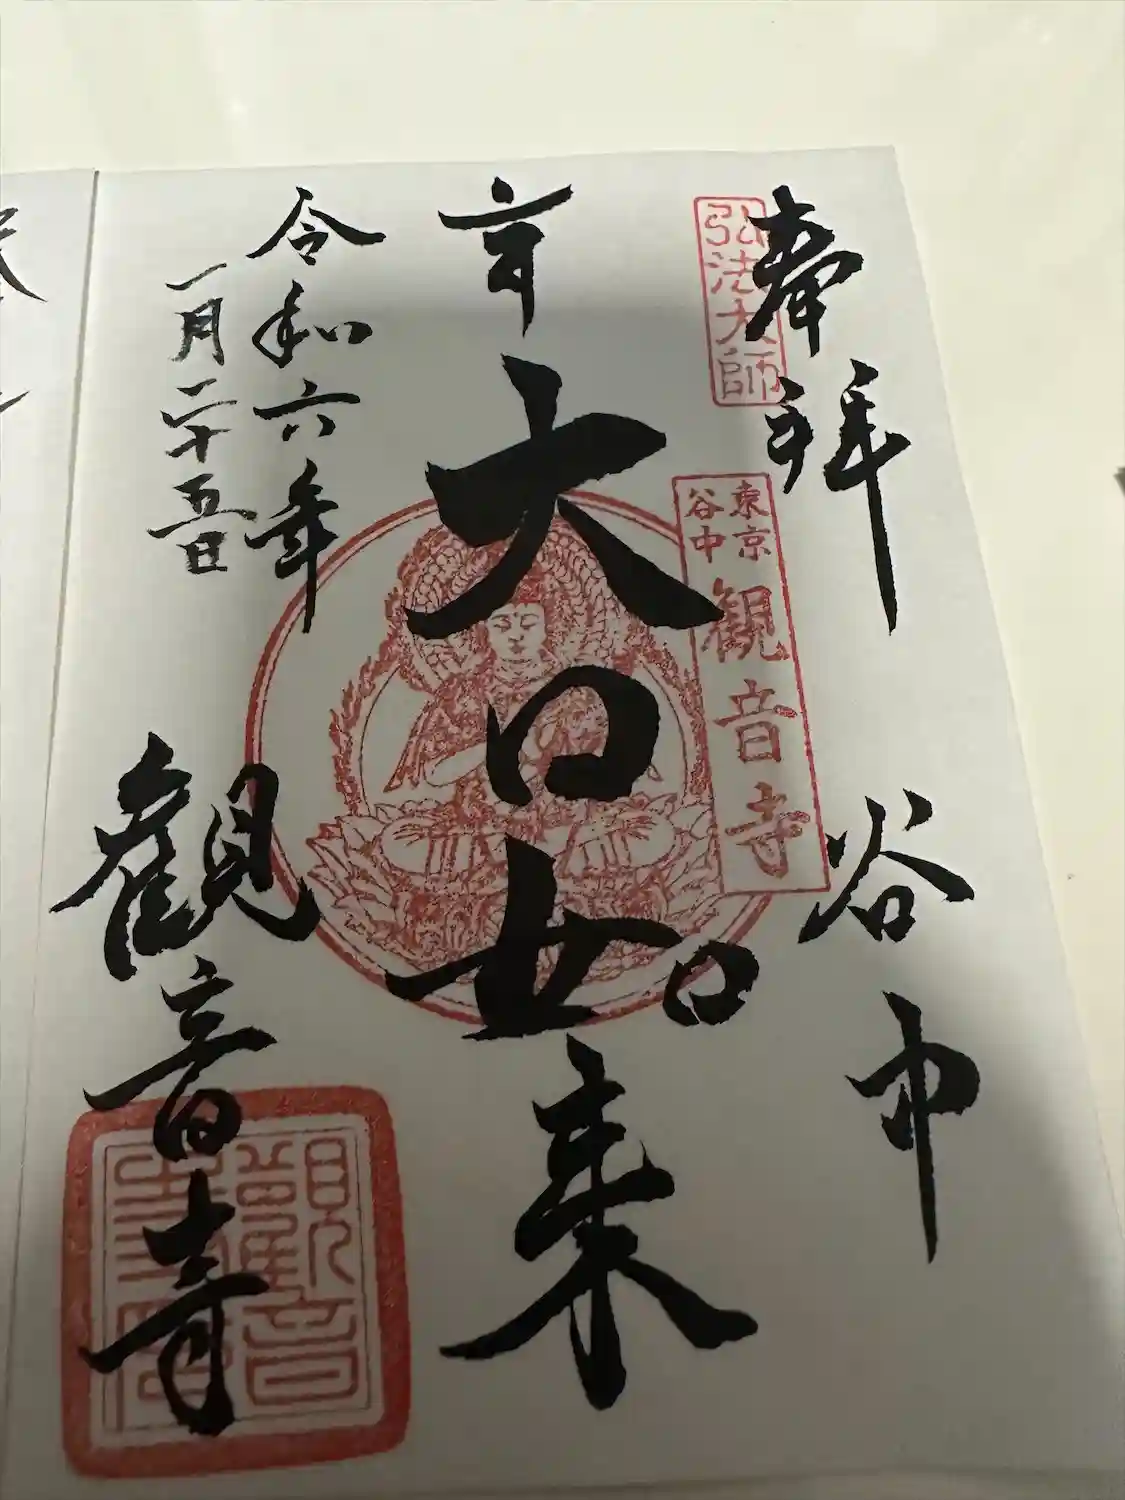 奉拝
谷中
弘法大師
東京
谷中
観音寺
大日如来
令和六年
一月二十五日
観音寺